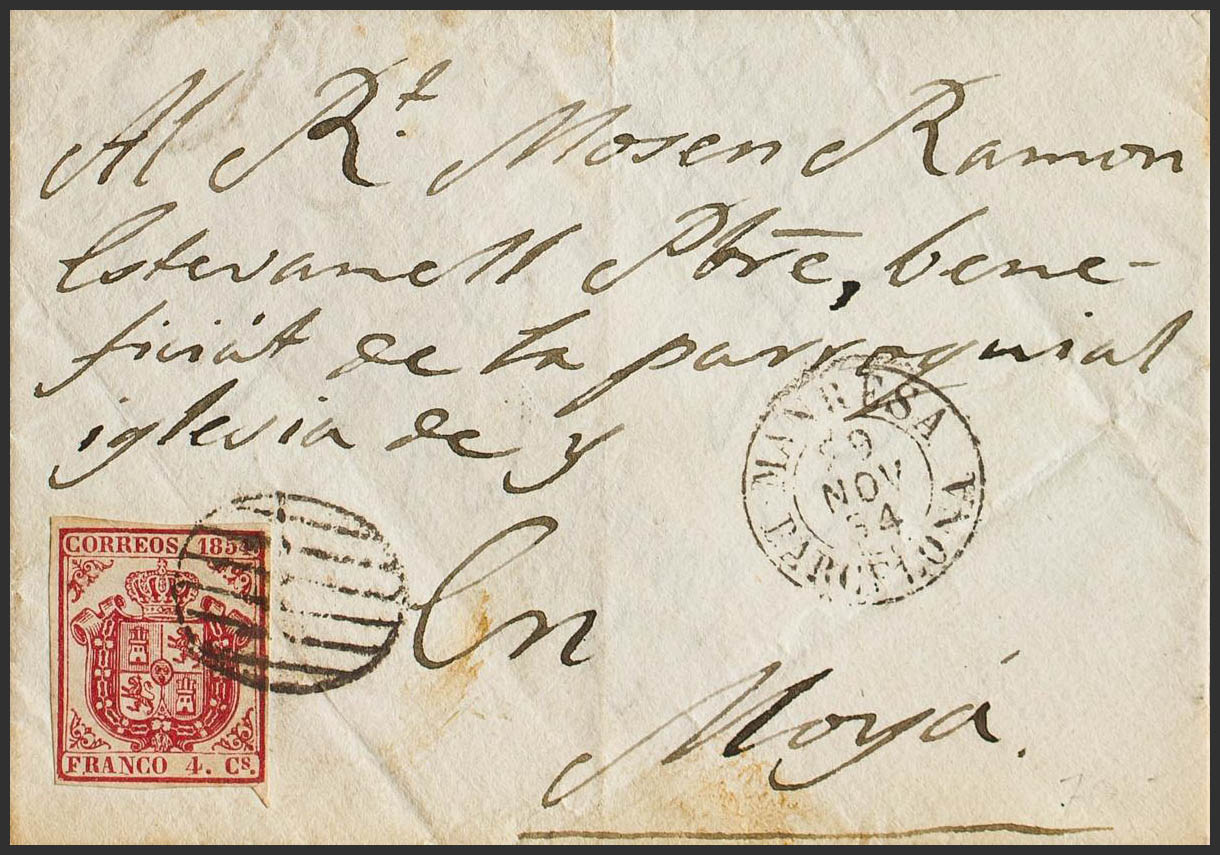 Al R.t Mosen Ramon
Estevanell Pbrē, bene-
ficiát de la parroquial
iglesia de y
MANRESA
29
NOV
54
BARCELONA
CORREOS 1854
En
Moyá.
FRANCO 4. Cs.